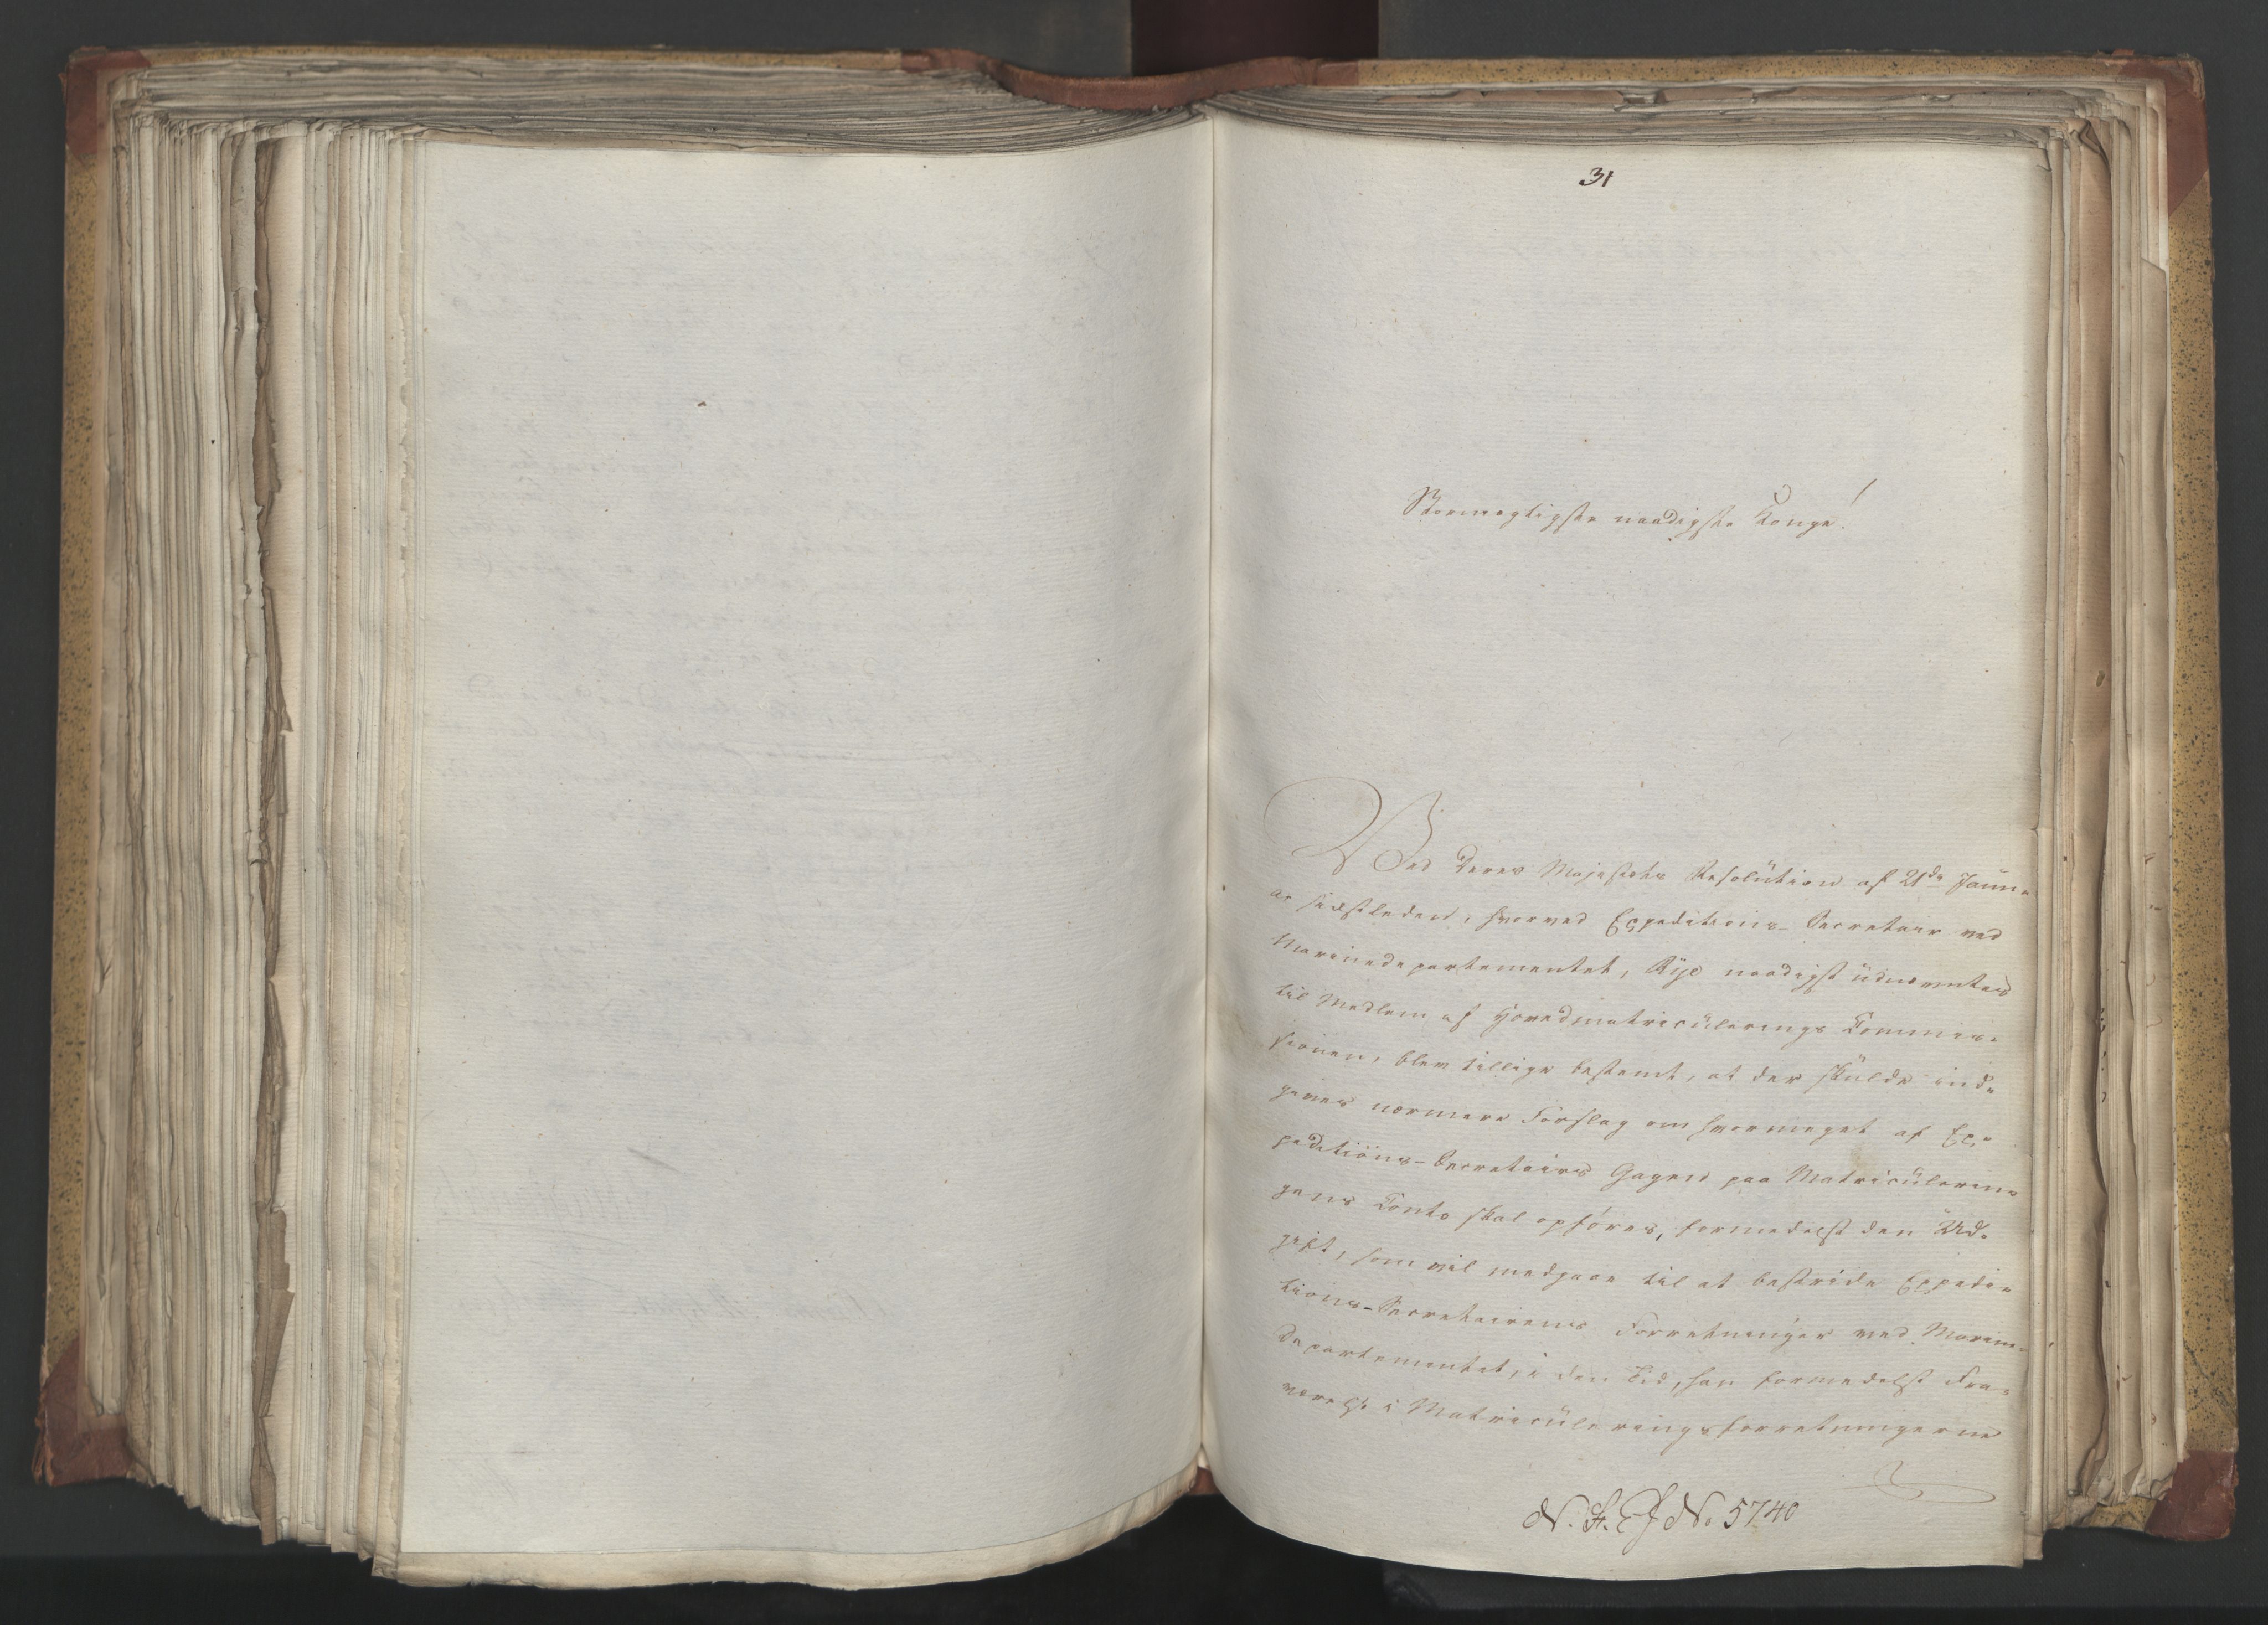 31
Stormægtigste naadigste Konge!
Ved Deres Majestæts Resolution af 21de Janu-
ar sidstleden, hvorved Expeditions-Secretair ved
Marinedepartementet, Rye naadigst udnævntes
til Medlem af Hovedmatriculerings Commis-
sionen, blev tillige bestemt, at der skulde ind-
gives nærmere Forslag om hvormeget af Ex-
peditions-Secretairs Gagen paa Matriculerin-
gens Conto skal opføres, formedelst den Ud-
gift, som vil medgaae til at bestride Expedi-
tions-Secretairens Forretninger ved Marine-
Departementet, i den Tid, han formedelst Fra-
værelse i Matriculeringsforretningerne
N. F. J No 5740